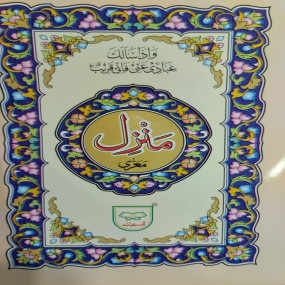 وَإِذَا سَأَلَكَ
عِبَادِي عَنِّي فَإِنِّي قَرِيبٌ
مَنزل
معرّیٰ